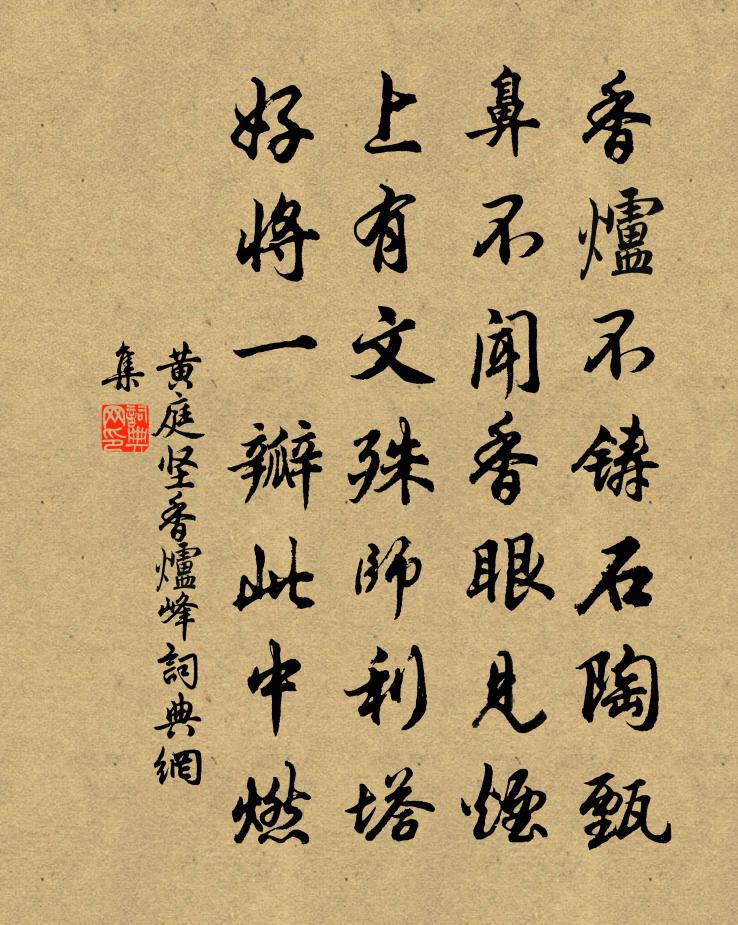 香爐不铸石陶甄
鼻不闻香眼見煙
上有文殊師利塔
好将一瓣此中燃
黄庭坚香爐峰詞典網
集
詞典网印